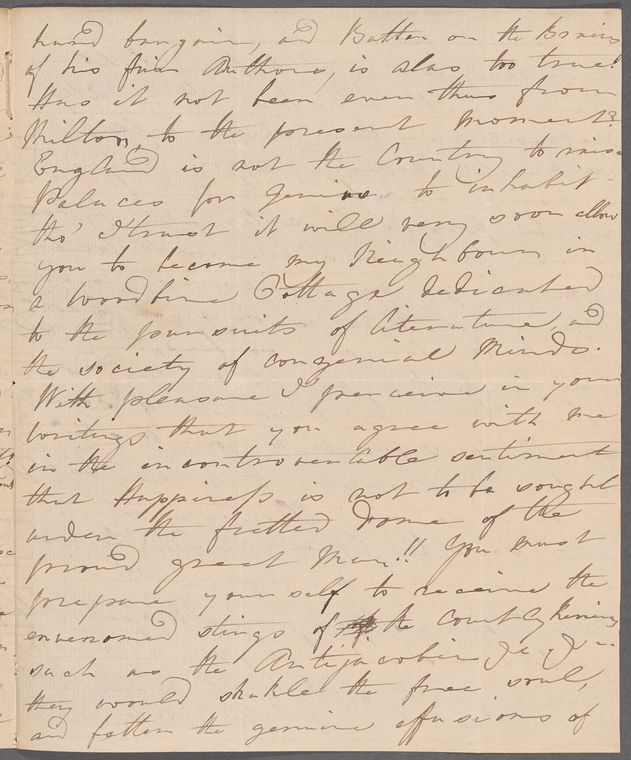 hard bargain, and Batten on the Brains
of his firm Authors, is alas too true!
Has it not been even thus from
Milton, to the present moment?
England is not the Country to raise
Palaces for Genius to inhabit
tho' I trust it will very soon allow
you to become my Neighbour in
a Woodbine Cottage dedicated
to the pursuits of literature, and
the society of congenial Minds.
With pleasure I perceive in your
writings that you agree with me
in the incontrovertable sentiment
that Happiness is not to be sought
under the fretted Dome of the
proud great Man!! You must
prepare yourself to receive the
envenomed stings of the Court
such as the Antijacobin &c &c
they would shakle the free soul,
and fetter the genuine effusions of